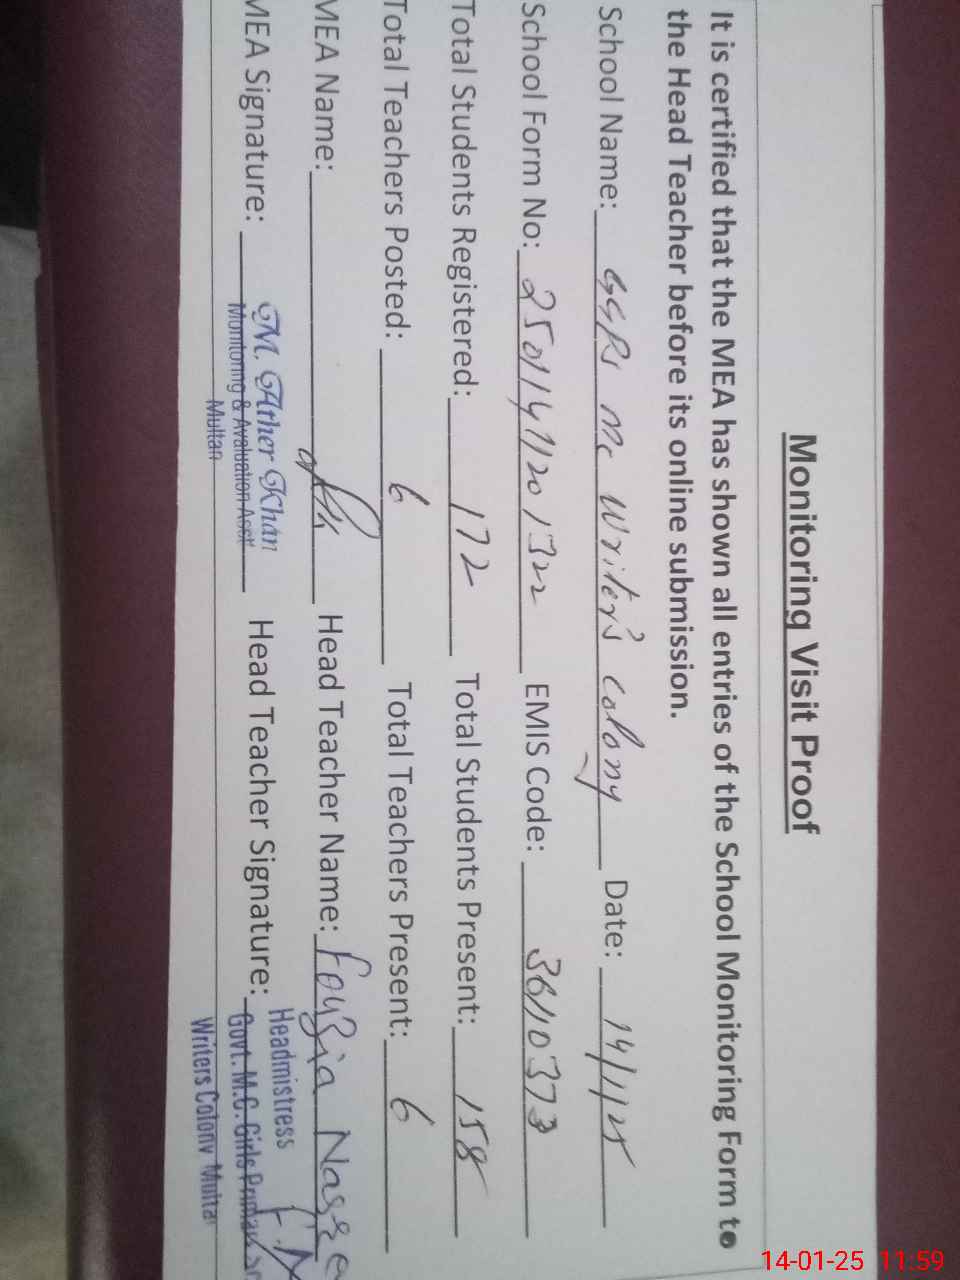 Monitoring Visit Proof
It is certified that the MEA has shown all entries of the School Monitoring Form to
the Head Teacher before its online submission.
School Name: GGPS Mc Writer's colony Date: 14/1/25
School Form No: EMIS Code: 36110373
Total Students Registered: 172 Total Students Present: 158
Total Teachers Posted: 6 Total Teachers Present: 6
MEA Name: Head Teacher Name: Fouzia
MEA Signature: M. Ather Khan Head Teacher Signature: Headmistress
Monitoring & Avaluation Asst Govt. M.C. Girls
Multan Writers Colony
14-01-25 11:59